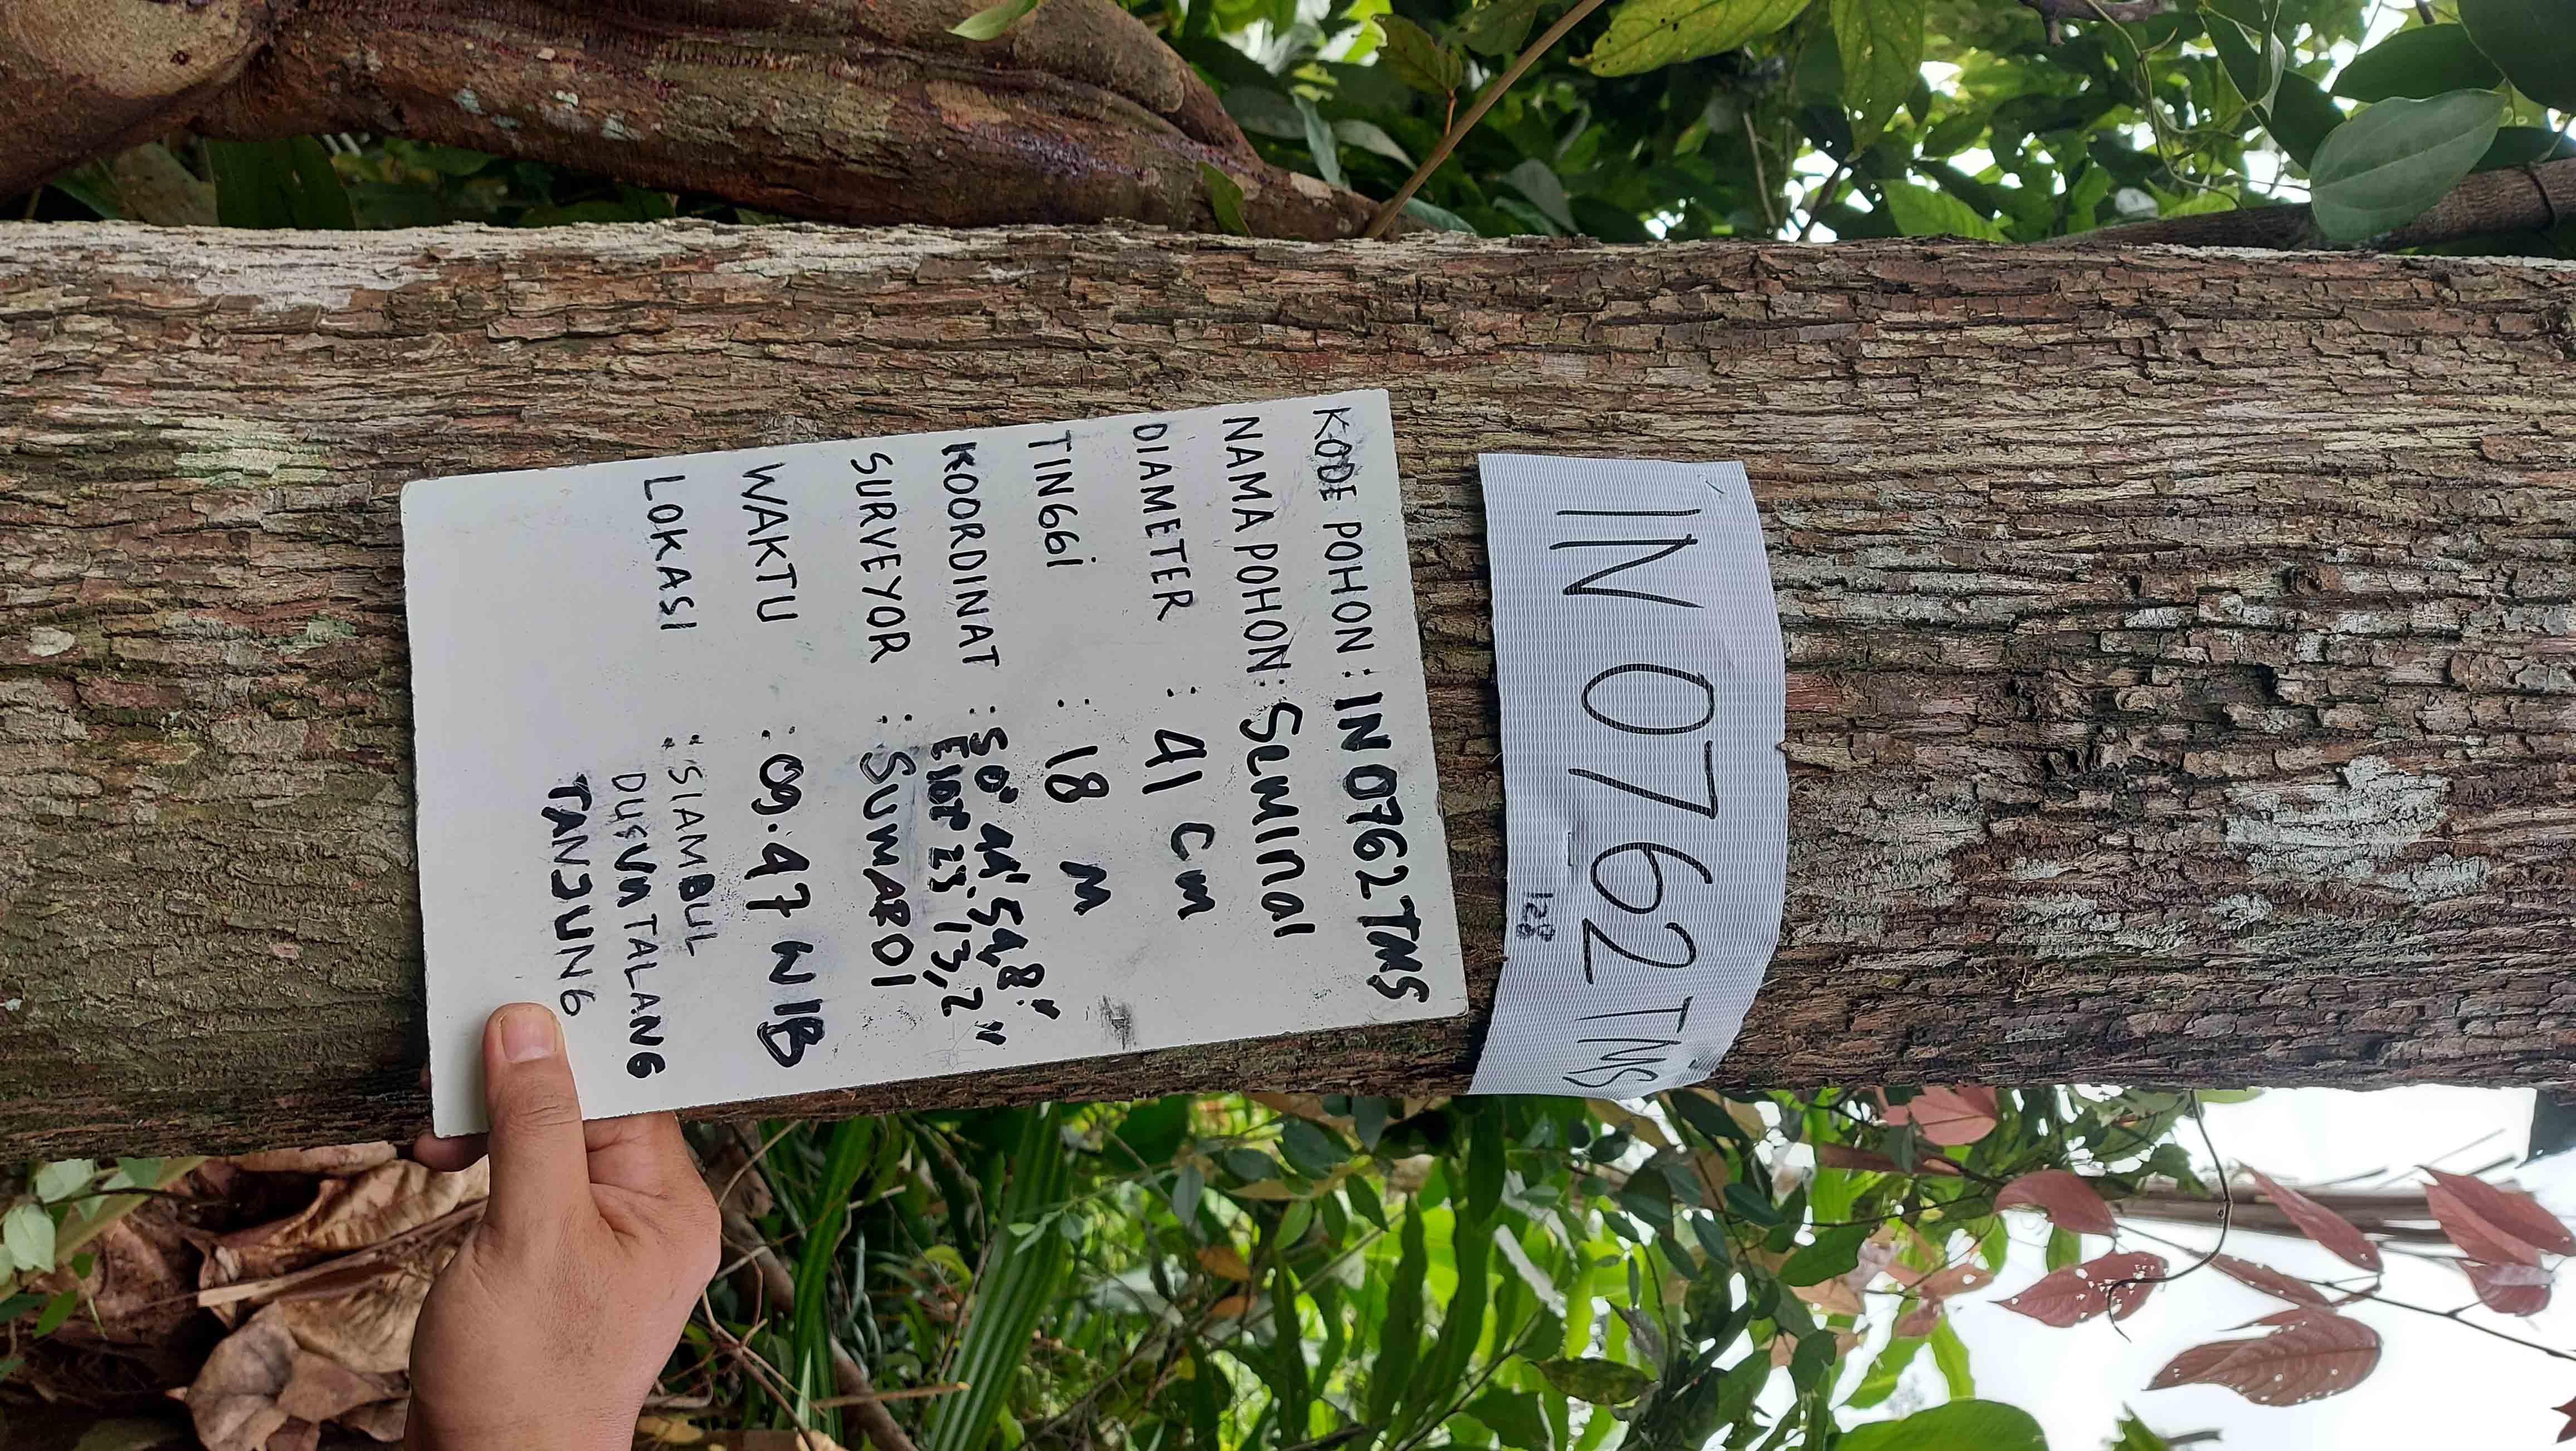 IN 0762 TMS
128
KODE POHON : IN 0762 TMS
NAMA POHON : Seminai
DIAMETER : 41 cm
TINGGi : 18 M
KOORDINAT : S 0° 44' 54,8"
23' 13,2"
SURVEYOR : SUMARDI
WAKTU : 09.47 WIB
LOKASI : SIAMBUL
DUSUN TALANG
TANJUNG